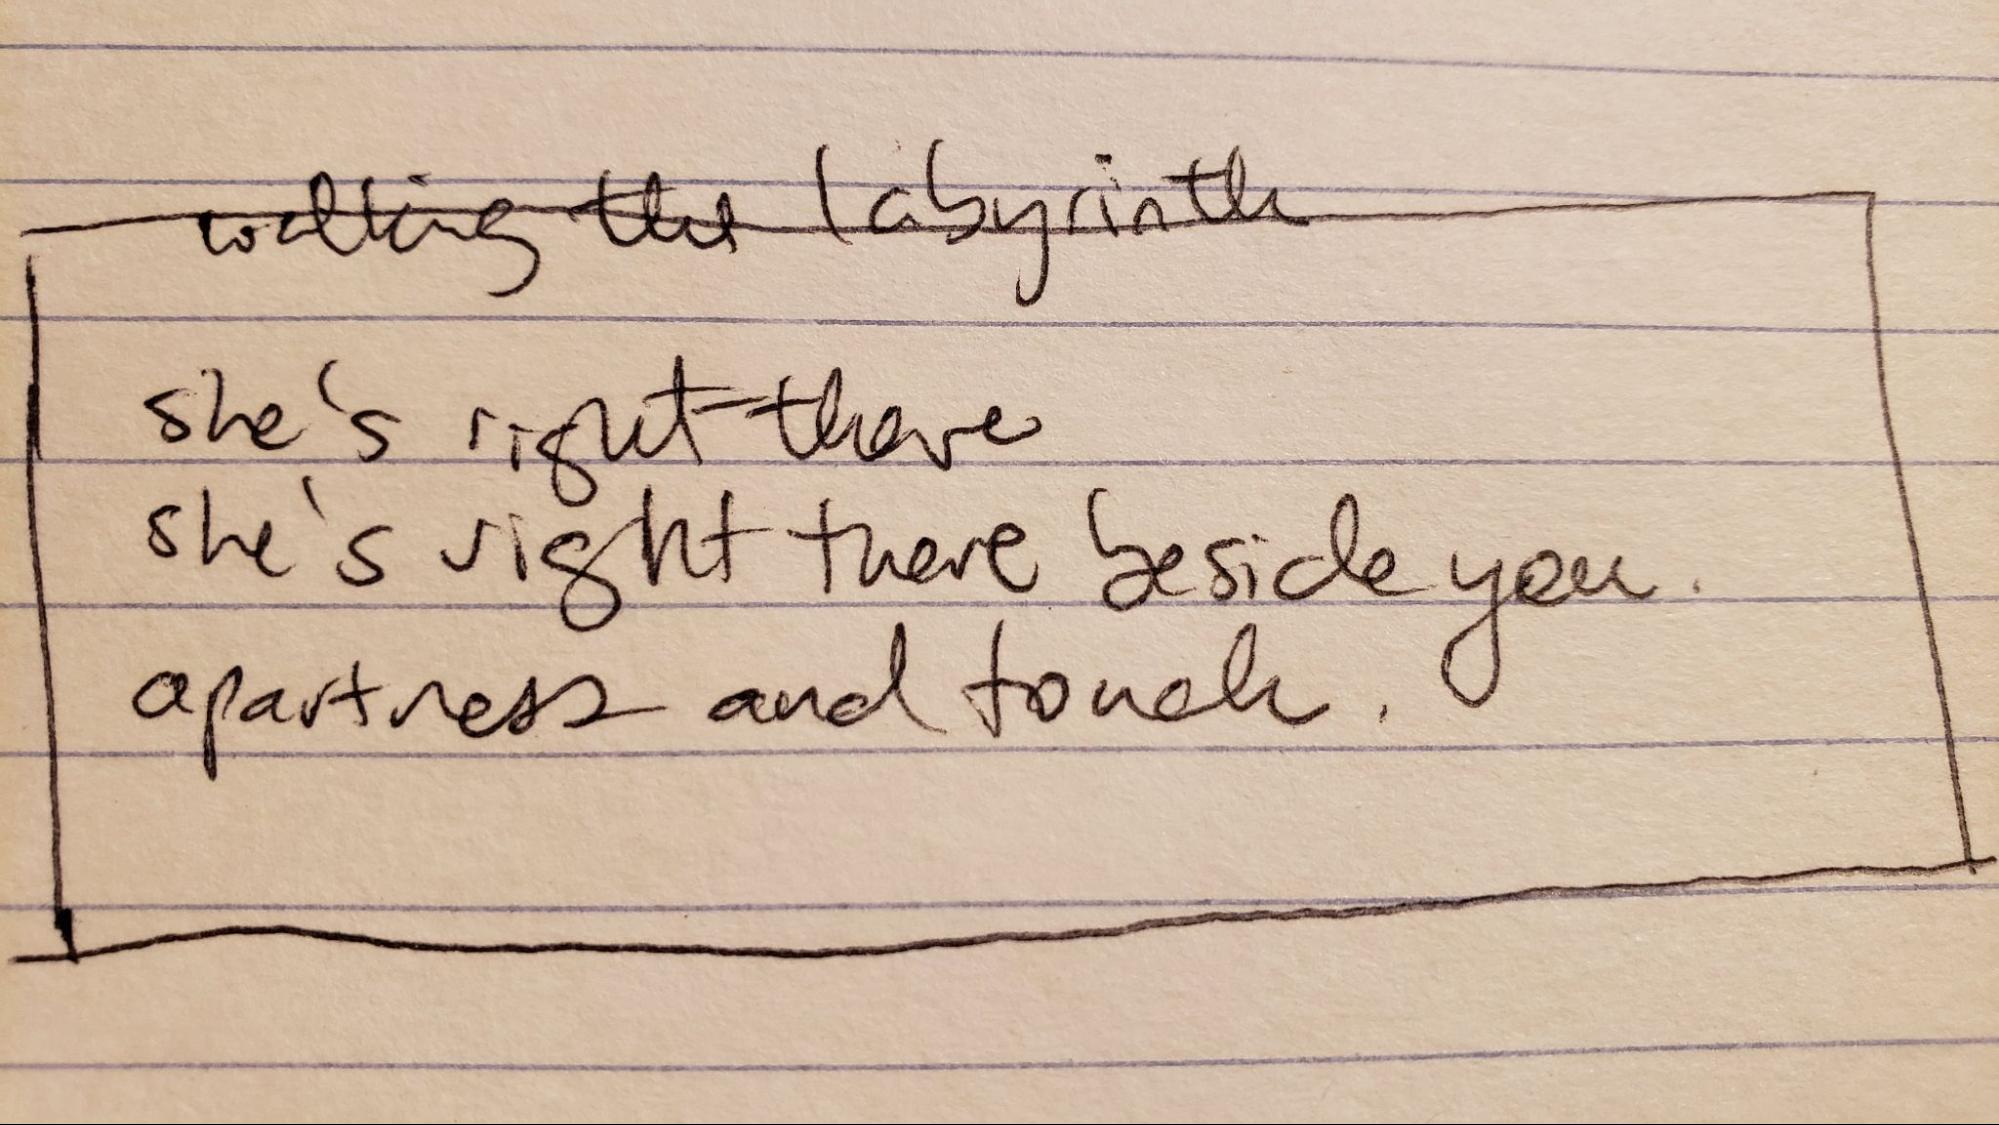 walking the labyrinth
she's right there
she's right there beside you.
apartness and touch.